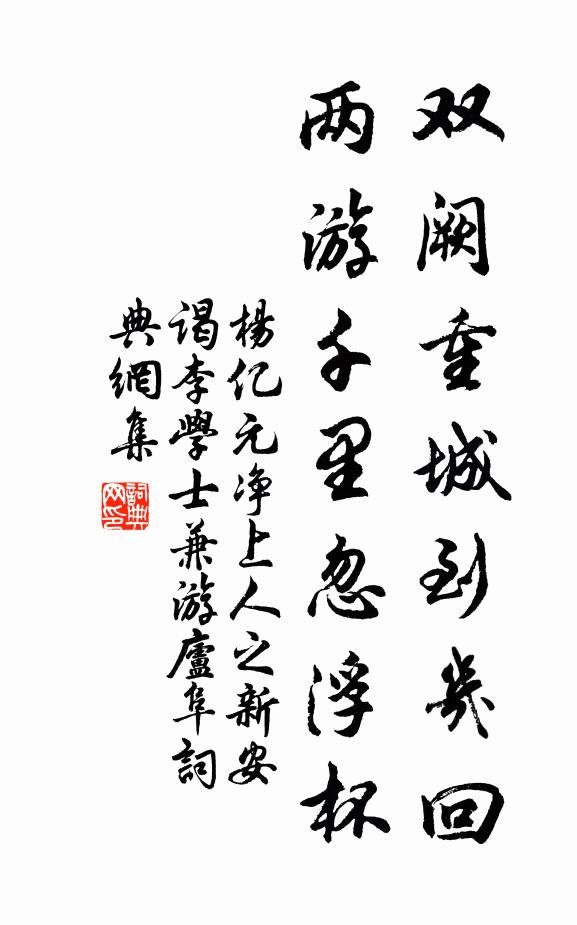 双阙重城到几回
两游千里忽浮杯
楊亿元净上人之新安
谒李學士兼游廬阜詞
典網集
詞典网印